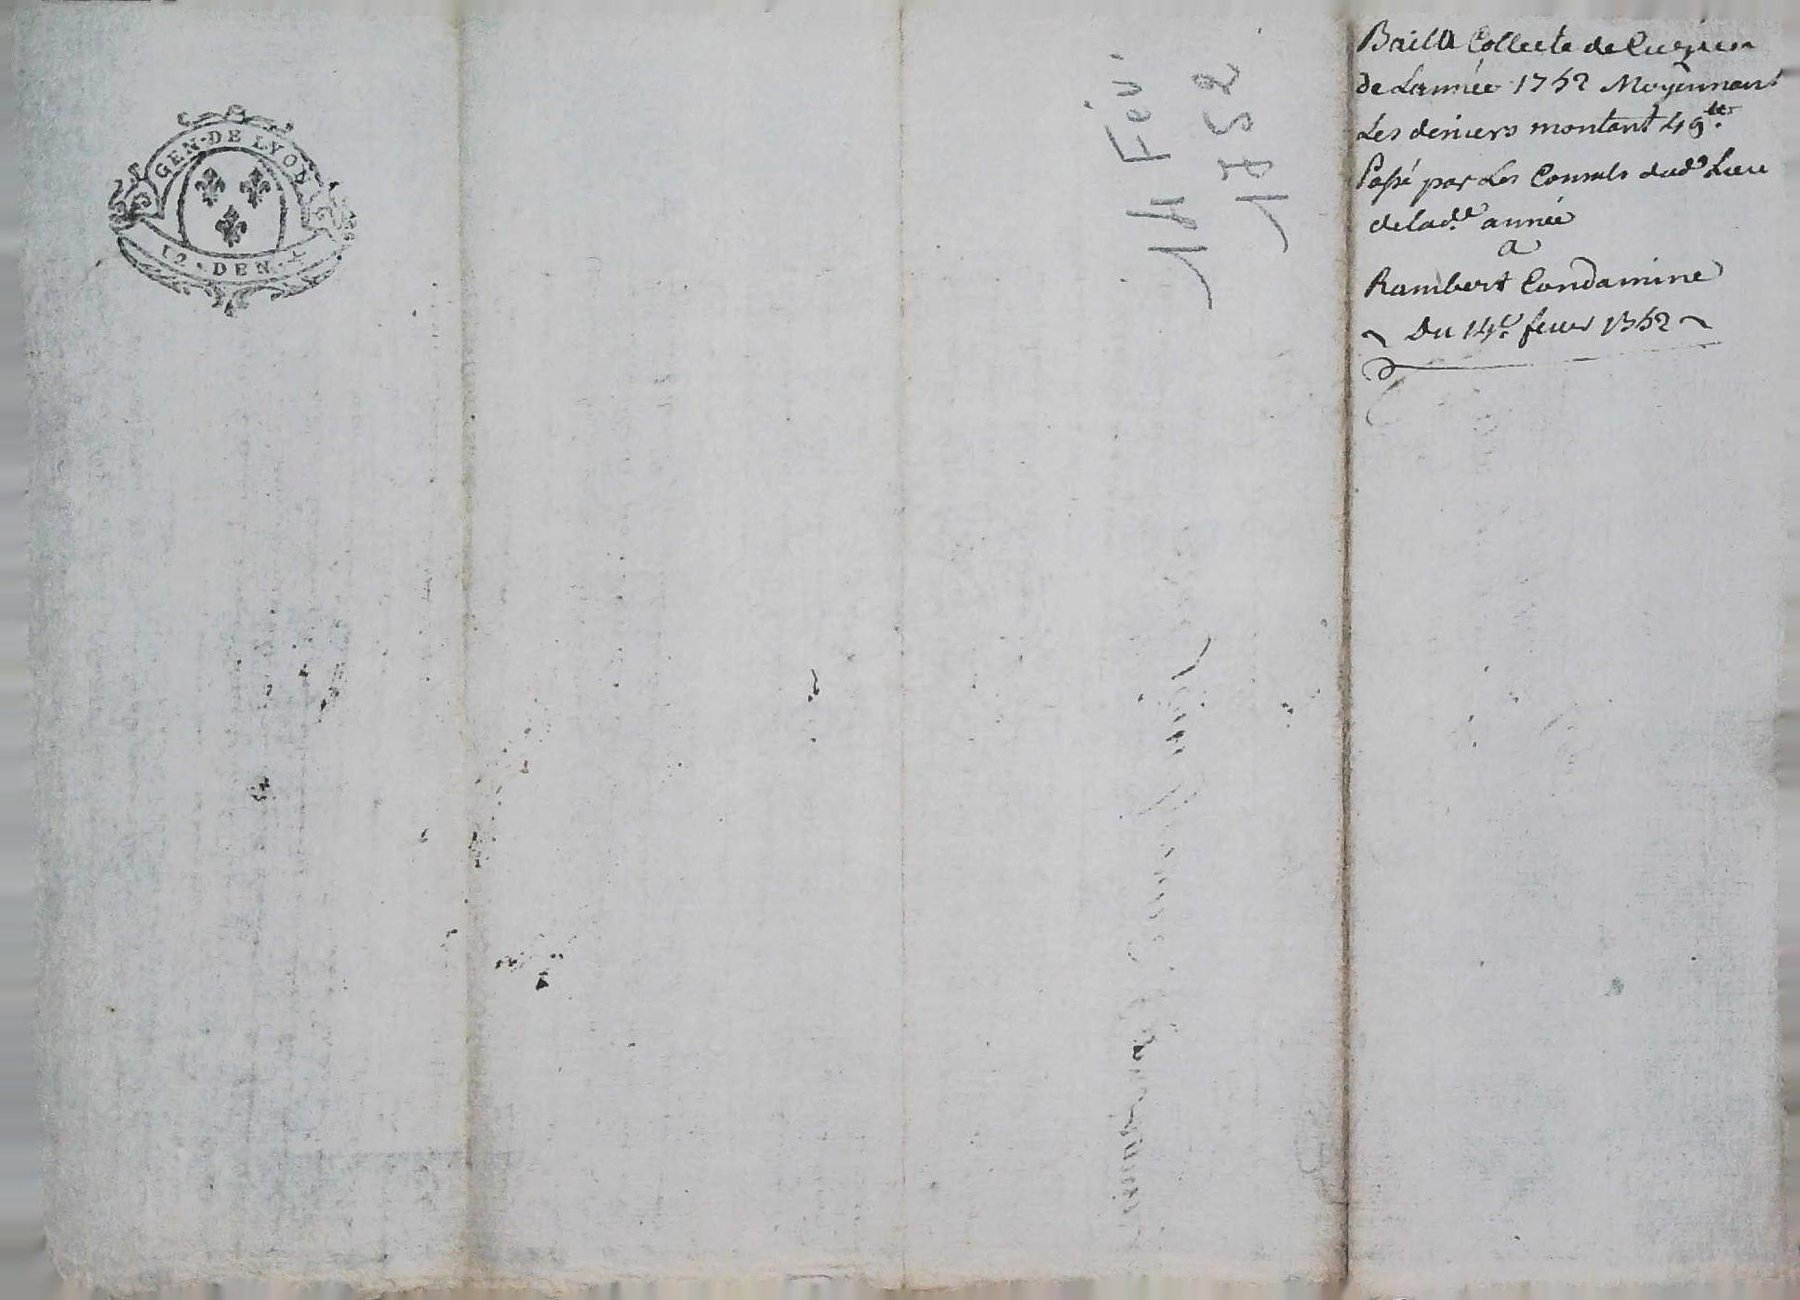 GEN·DE LYON
12·DEN·
14 Fév.
1752
Bail a Collecte de Cuzieu
de Lannée 1752 Moyennant
Les deniers montant 49 lt.
Passé par Les Consuls dud. Lieu
de lad.e année
a
Rambert Condamine
Du 14e feuer 1752